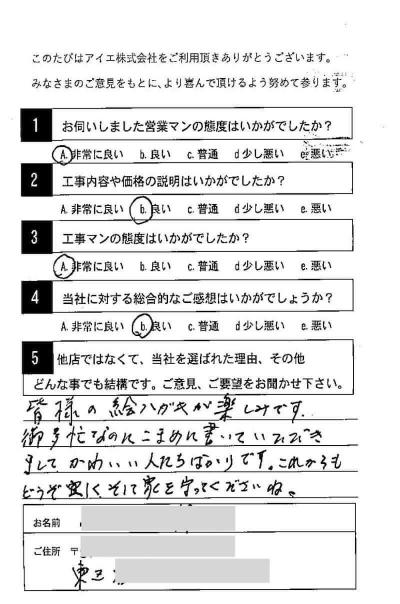 このたびはアイエ株式会社をご利用頂きありがとうございます。
みなさまのご意見をもとに、より喜んで頂けるよう努めて参ります。
1 お伺いしました営業マンの態度はいかがでしたか?
A.非常に良い b.良い c.普通 d少し悪い e.悪い
2 工事内容や価格の説明はいかがでしたか?
A.非常に良い b.良い c.普通 d少し悪い e.悪い
3 工事マンの態度はいかがでしたか?
A.非常に良い b.良い c.普通 d少し悪い e.悪い
4 当社に対する総合的なご感想はいかがでしょうか?
A.非常に良い b.良い c.普通 d少し悪い e.悪い
5 他店ではなくて、当社を選ばれた理由、その他
どんな事でも結構です。ご意見、ご要望をお聞かせ下さい。
皆様の絵ハガキが楽しみです。
御多忙なのにこまめに書いていただき
まして かわいい人たちばかりです。これからも
どうぞ 楽しく そして家を守ってくださいね。
お名前
ご住所 〒
東